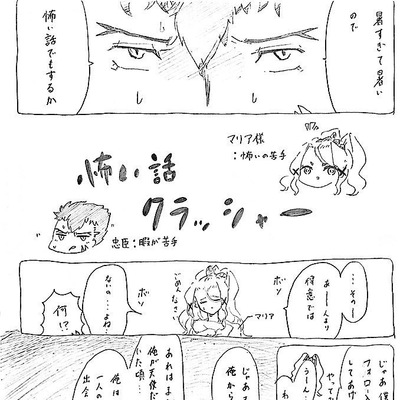 暑すぎて暑い
ので
怖い話でもするか
マリア様
:怖いの苦手
怖い話
クラッシャー
忠臣:暇が苦手
…その
あー人より
得意では
ごめんなさい
マリア
ボソ
ないの…よね…
ボソ
何!?
フォロー
してあげ
うーん…
わ
俺から
あれは
俺が天使だ
いた頃…
俺は
一人の
出会